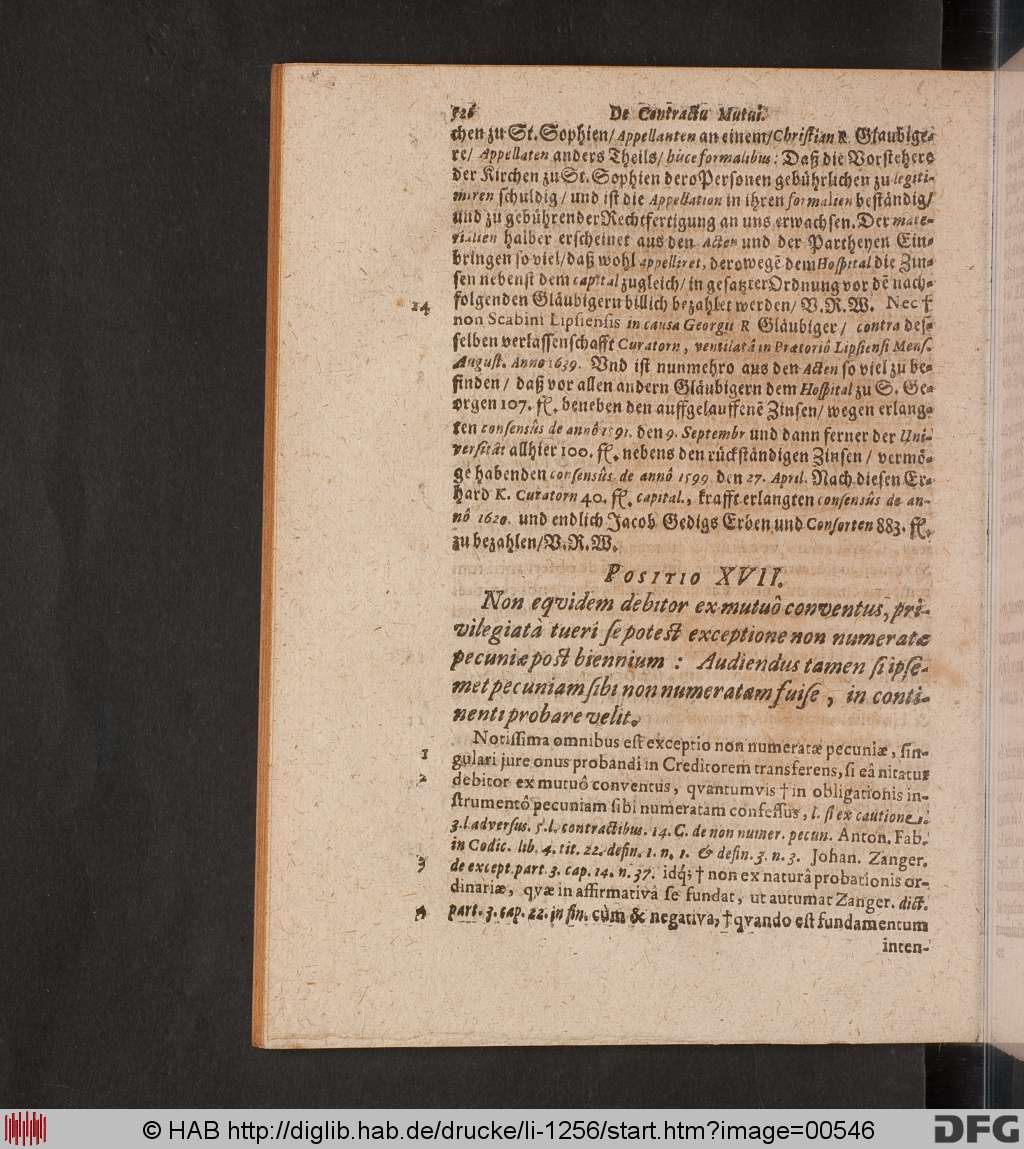 526 De Contractu Mutui.
chen zu St. Sophien/ Appellanten an einem/ Christian R. Glaubige-
re/ Appellaten anders Theils/ hisce formalibus: Daß die Vorstehere
der Kirchen zu St. Sophien dero Personen gebührlichen zu legiti-
miren schuldig/ und ist die Appellation in ihren formalien beständig/
und zu gebührender Rechtfertigung an uns erwachsen. Der mate-
rialien halber erscheinet aus den Acten und der Partheyen Ein-
bringen so viel/ daß wohl appelliret, derowegē dem Hospital die Zin-
sen nebenst dem capital zugleich/ in gesatzter Ordnung vor dē nach-
folgenden Gläubigern billich bezahlet werden/ V.R.W. Nec †
14
non Scabini Lipsiensis in causa Georgii R Gläubiger/ contra des-
selben verlassenschafft Curatorn, ventilatâ in Prætoriô Lipsiensi Mens.
August. Anno 1639. Vnd ist nunmehro aus den Acten so viel zu be-
finden/ daß vor allen andern Gläubigern dem Hospital zu S. Ge-
orgen 107. fl. beneben den auffgelauffenē Zinsen/ wegen erlang-
ten consensûs de annô 1591. den 9. Septembr und dann ferner der Uni-
versität allhier 100. fl. nebens den rückständigen Zinsen/ vermö-
ge habenden consensûs de annô 1599 den 27. April. Nach diesen Er-
hard K. Curatorn 40. fl. capital., krafft erlangten consensûs de an-
nô 1620. und endlich Jacob Gedigs Erben und Consorten 883. fl.
zu bezahlen/ V.R.W.
POSITIO XVII.
Non eqvidem debitor ex mutuô conventus, pri-
vilegiatà tueri se potest exceptione non numeratæ
pecuniæ post biennium : Audiendus tamen si ipse-
met pecuniam sibi non numeratam fuisse, in conti-
nenti probare velit.
Notissima omnibus est exceptio non numeratæ pecuniæ, sin-
1
gulari jure onus probandi in Creditorem transferens, si eâ nitatur
2
debitor ex mutuô conventus, qvantumvis † in obligationis in-
strumentô pecuniam sibi numeratam confessus, l. si ex cautione
3. l. adversus. 5. l. contractibus. 14. C. de non numer. pecun. Anton. Fab.
in Codic. lib. 4. tit. 22. defin. 1. n. 1. & defin. 3. n. 3. Johan. Zanger.
3
de except. part. 3. cap. 14. n. 37. idq; † non ex naturâ probationis or-
dinariæ, qvæ in affirmativâ se fundat, ut autumat Zanger. dict.
4
part. 3. cap. 22. in fin. cùm & negativa, † qvando est fundamentum
inten-
© HAB http://diglib.hab.de/drucke/li-1256/start.htm?image=00546
DFG